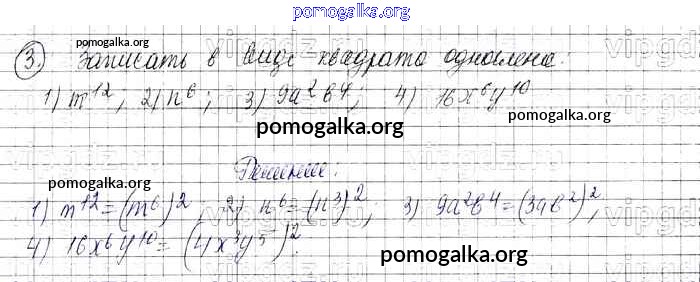 pomogalka.org
3. Записать в виде квадрата одночлена:
pomogalka.org
1) m¹²; 2) n⁶; 3) 9a²b⁴; 4) 16x⁶y¹⁰
pomogalka.org
pomogalka.org
Решение:
pomogalka.org
1) m¹²=(m⁶)², 2) n⁶=(n³)², 3) 9a²b⁴=(3ab²)²,
4) 16x⁶y¹⁰=(4x³y⁵)².
pomogalka.org
pomogalka.org